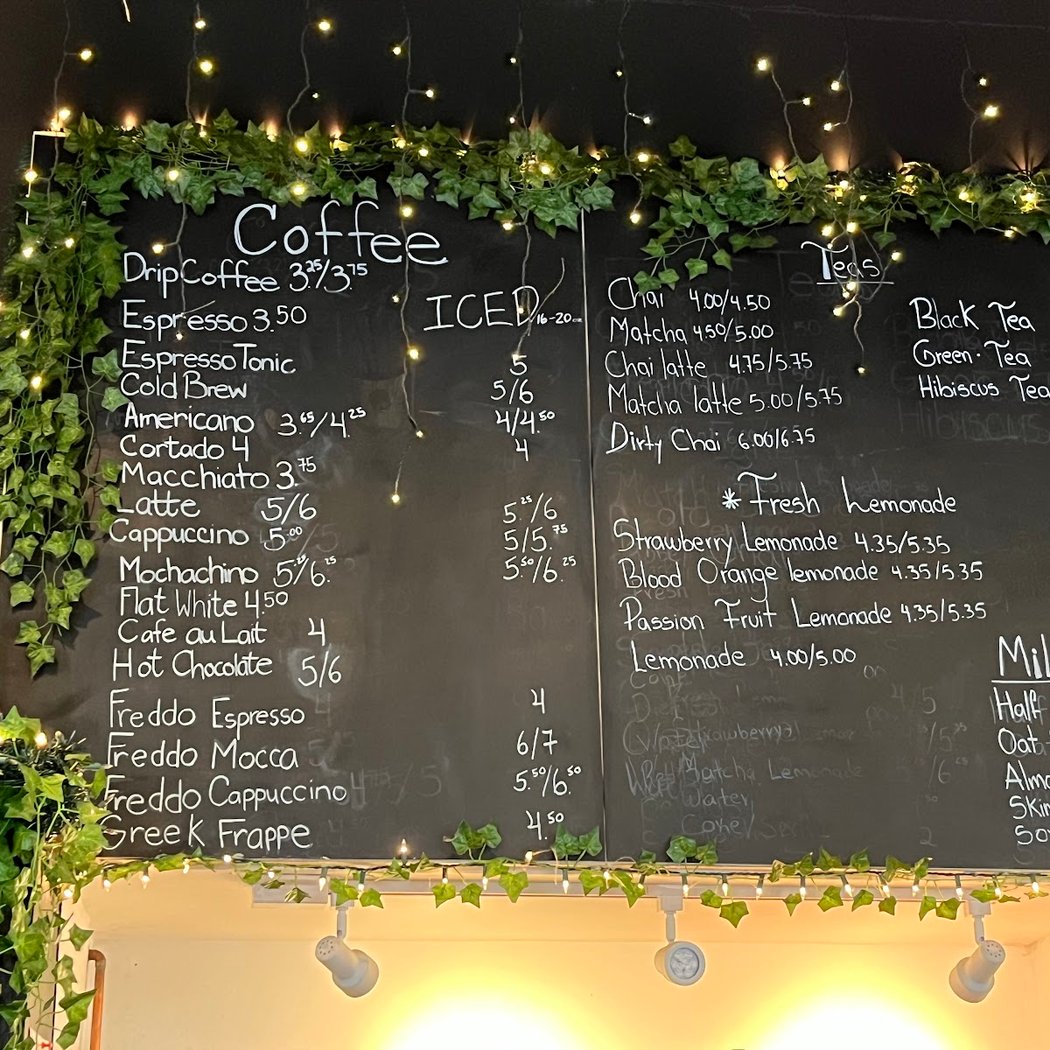 Coffee
Drip Coffee 3.25/3.75
ICED 16-20oz
Espresso 3.50
Espresso Tonic 5
Cold Brew 5/6
Americano 3.65/4.25 4/4.50
Cortado 4 4
Macchiato 3.75
Latte 5/6 5.25/6
Cappuccino 5.00 5/5.75
Mochachino 5.25/6.25 5.50/6.25
Flat White 4.50
Cafe au Lait 4
Hot Chocolate 5/6
Freddo Espresso 4
Freddo Mocca 6/7
Freddo Cappuccino 5.50/6.50
Greek Frappe 4.50
Teas
Chai 4.00/4.50
Matcha 4.50/5.00
Chai latte 4.75/5.75
Matcha latte 5.00/5.75
Dirty Chai 6.00/6.75
Black Tea
Green Tea
Hibiscus Tea
*Fresh Lemonade
Strawberry Lemonade 4.35/5.35
Blood Orange lemonade 4.35/5.35
Passion Fruit Lemonade 4.35/5.35
Lemonade 4.00/5.00
Mil
Half
Oat
Almo
Skim
So